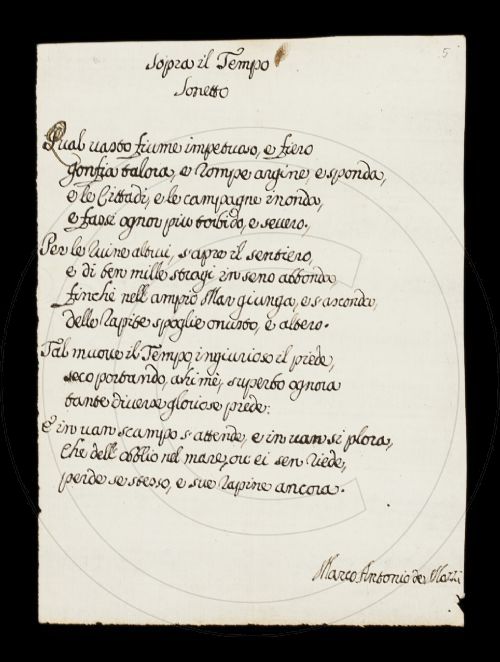 5
Sopra il Tempo
Sonetto
Qual vasto fiume impetuoso, e fiero
gonfia talora, e rompe argine, e sponda,
e le Cittadi, e le campagne inonda,
e fassi ognor più torbido, e severo.
Per le ruine altrui, s'apre il sentiero,
e di ben mille stragi in seno abbonda,
finchè nell'ampio Mar giunga, e s'asconda,
delle rapite spoglie onusto, e altero.
Tal muove il Tempo ingiurioso il piede,
seco portando, ahi me, superbo ognora
tante diverse gloriose prede:
E in van scampo s'attende, e in van si plora,
Che dell'obblio nel mare, ov'ei sen riede,
perde se stesso, e sue rapine ancora.
Marco Antonio de